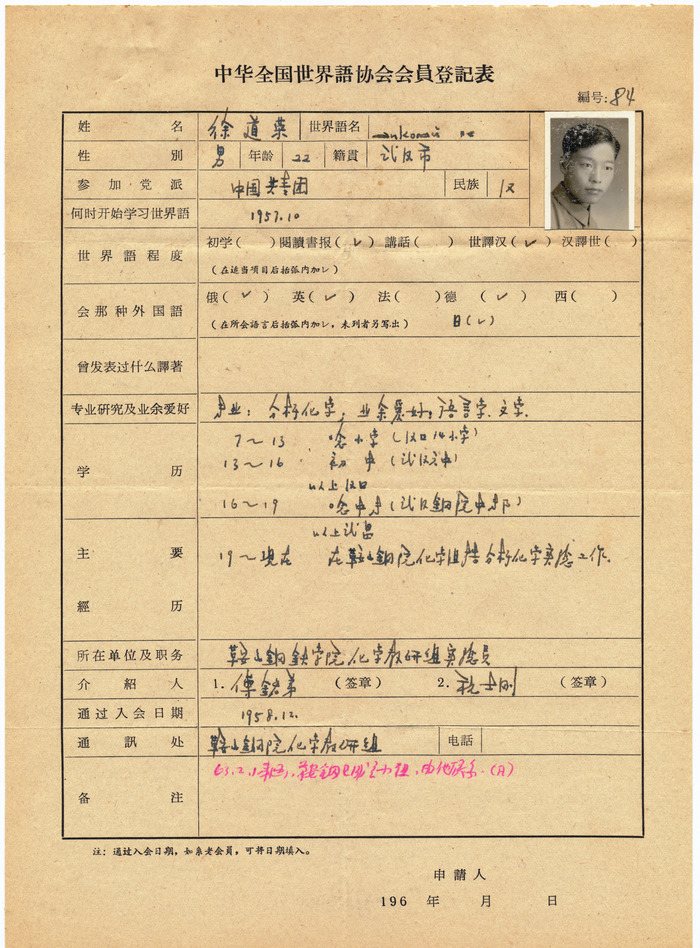 中华全国世界語协会会員登記表
編号: 84
姓名 徐道荣 世界語名
性別 男 年龄 22 籍貫 武汉市
参加党派 中国共青团 民族 汉
何时开始学习世界語 1957.10
世界語程度 初学( )閱讀書报(✓)講話( ) 世譯汉(✓) 汉譯世( )
(在适当項目后括弧内加✓)
会那种外国語 俄(✓) 英(✓) 法( ) 德(✓) 西( )
(在所会語言后括弧内加✓,未列者另写出) 日(✓)
曾发表过什么譯著
专业研究及业余爱好 专业:分析化学;业余爱好:語言学、文学.
学历 7～13 唸小学(汉口14小学)
13～16 初中(武汉六中)
以上汉口
16～19 唸中专(武汉鋼院中专部)
以上武昌
主要經历 19～現在 在鞍山鋼院化学組搞分析化学实驗工作.
所在单位及职务 鞍山鋼鉄学院化学教研組实驗員
介紹人 1. 傅銘第 (签章) 2. (签章)
通过入会日期 1958.12.
通訊处 鞍山鋼院化学教研組 电話
备注 63.2.1
注:通过入会日期,如系老会員,可将日期填入。
申請人
196 年 月 日